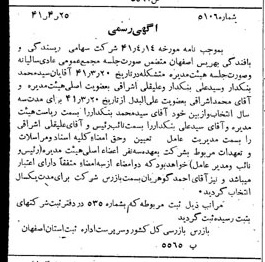 شماره ۵۱۰۶
۴۱ر۴ر۲۵
آگهی رسمی
بموجب نامه مورخه ۴۱ر۴ر۱۴ شرکت سهامی ریسندگی و
بافندگی بهریس اصفهان متضمن صورت جلسه مجمع عمومی عادی سالیانه
وصورت جلسه هیئت مدیره متشکله در تاریخ ۴۱ر۳ر۲۰ آقایان سید محمد
بنکدار وسید علی بنکدار وعلیقلی اشراقی بعضویت اصلی هیئت مدیره و
آقای محمد اشراقی بعضویت علی البدل از تاریخ ۴۱ر۳ر۲۰ برای مدت سه
سال انتخاب واز بین خود آقای سید محمد بنکدار را بسمت ریاست هیئت
مدیره و آقای سید علی بنکدار را بسمت نائب رئیس و آقای علیقلی اشراقی
را بسمت مدیریت عامل تعیین وحق امضاء کلیه اسناد ومراسلات
و تعهدات مربوط بشرکت بعهده سه نفر اعضاء اصلی هیئت مدیره (رئیس و
نائب ومدیر عامل) خواهد بود که دو امضاء از سه امضاء متفقاً دارای اعتبار
میباشد و نیز آقای احمد گوهریان بسمت بازرس شرکت برای مدت یکسال
انتخاب گردید.
مراتب ذیل ثبت مربوطه که بشماره ۵۳۵ در دفتر ثبت شرکتهای
بثبت رسیده ثبت گردید
بازرس بازرسی کل کشور وسرپرست اداره ثبت استان اصفهان
۵۵۶۵ پ